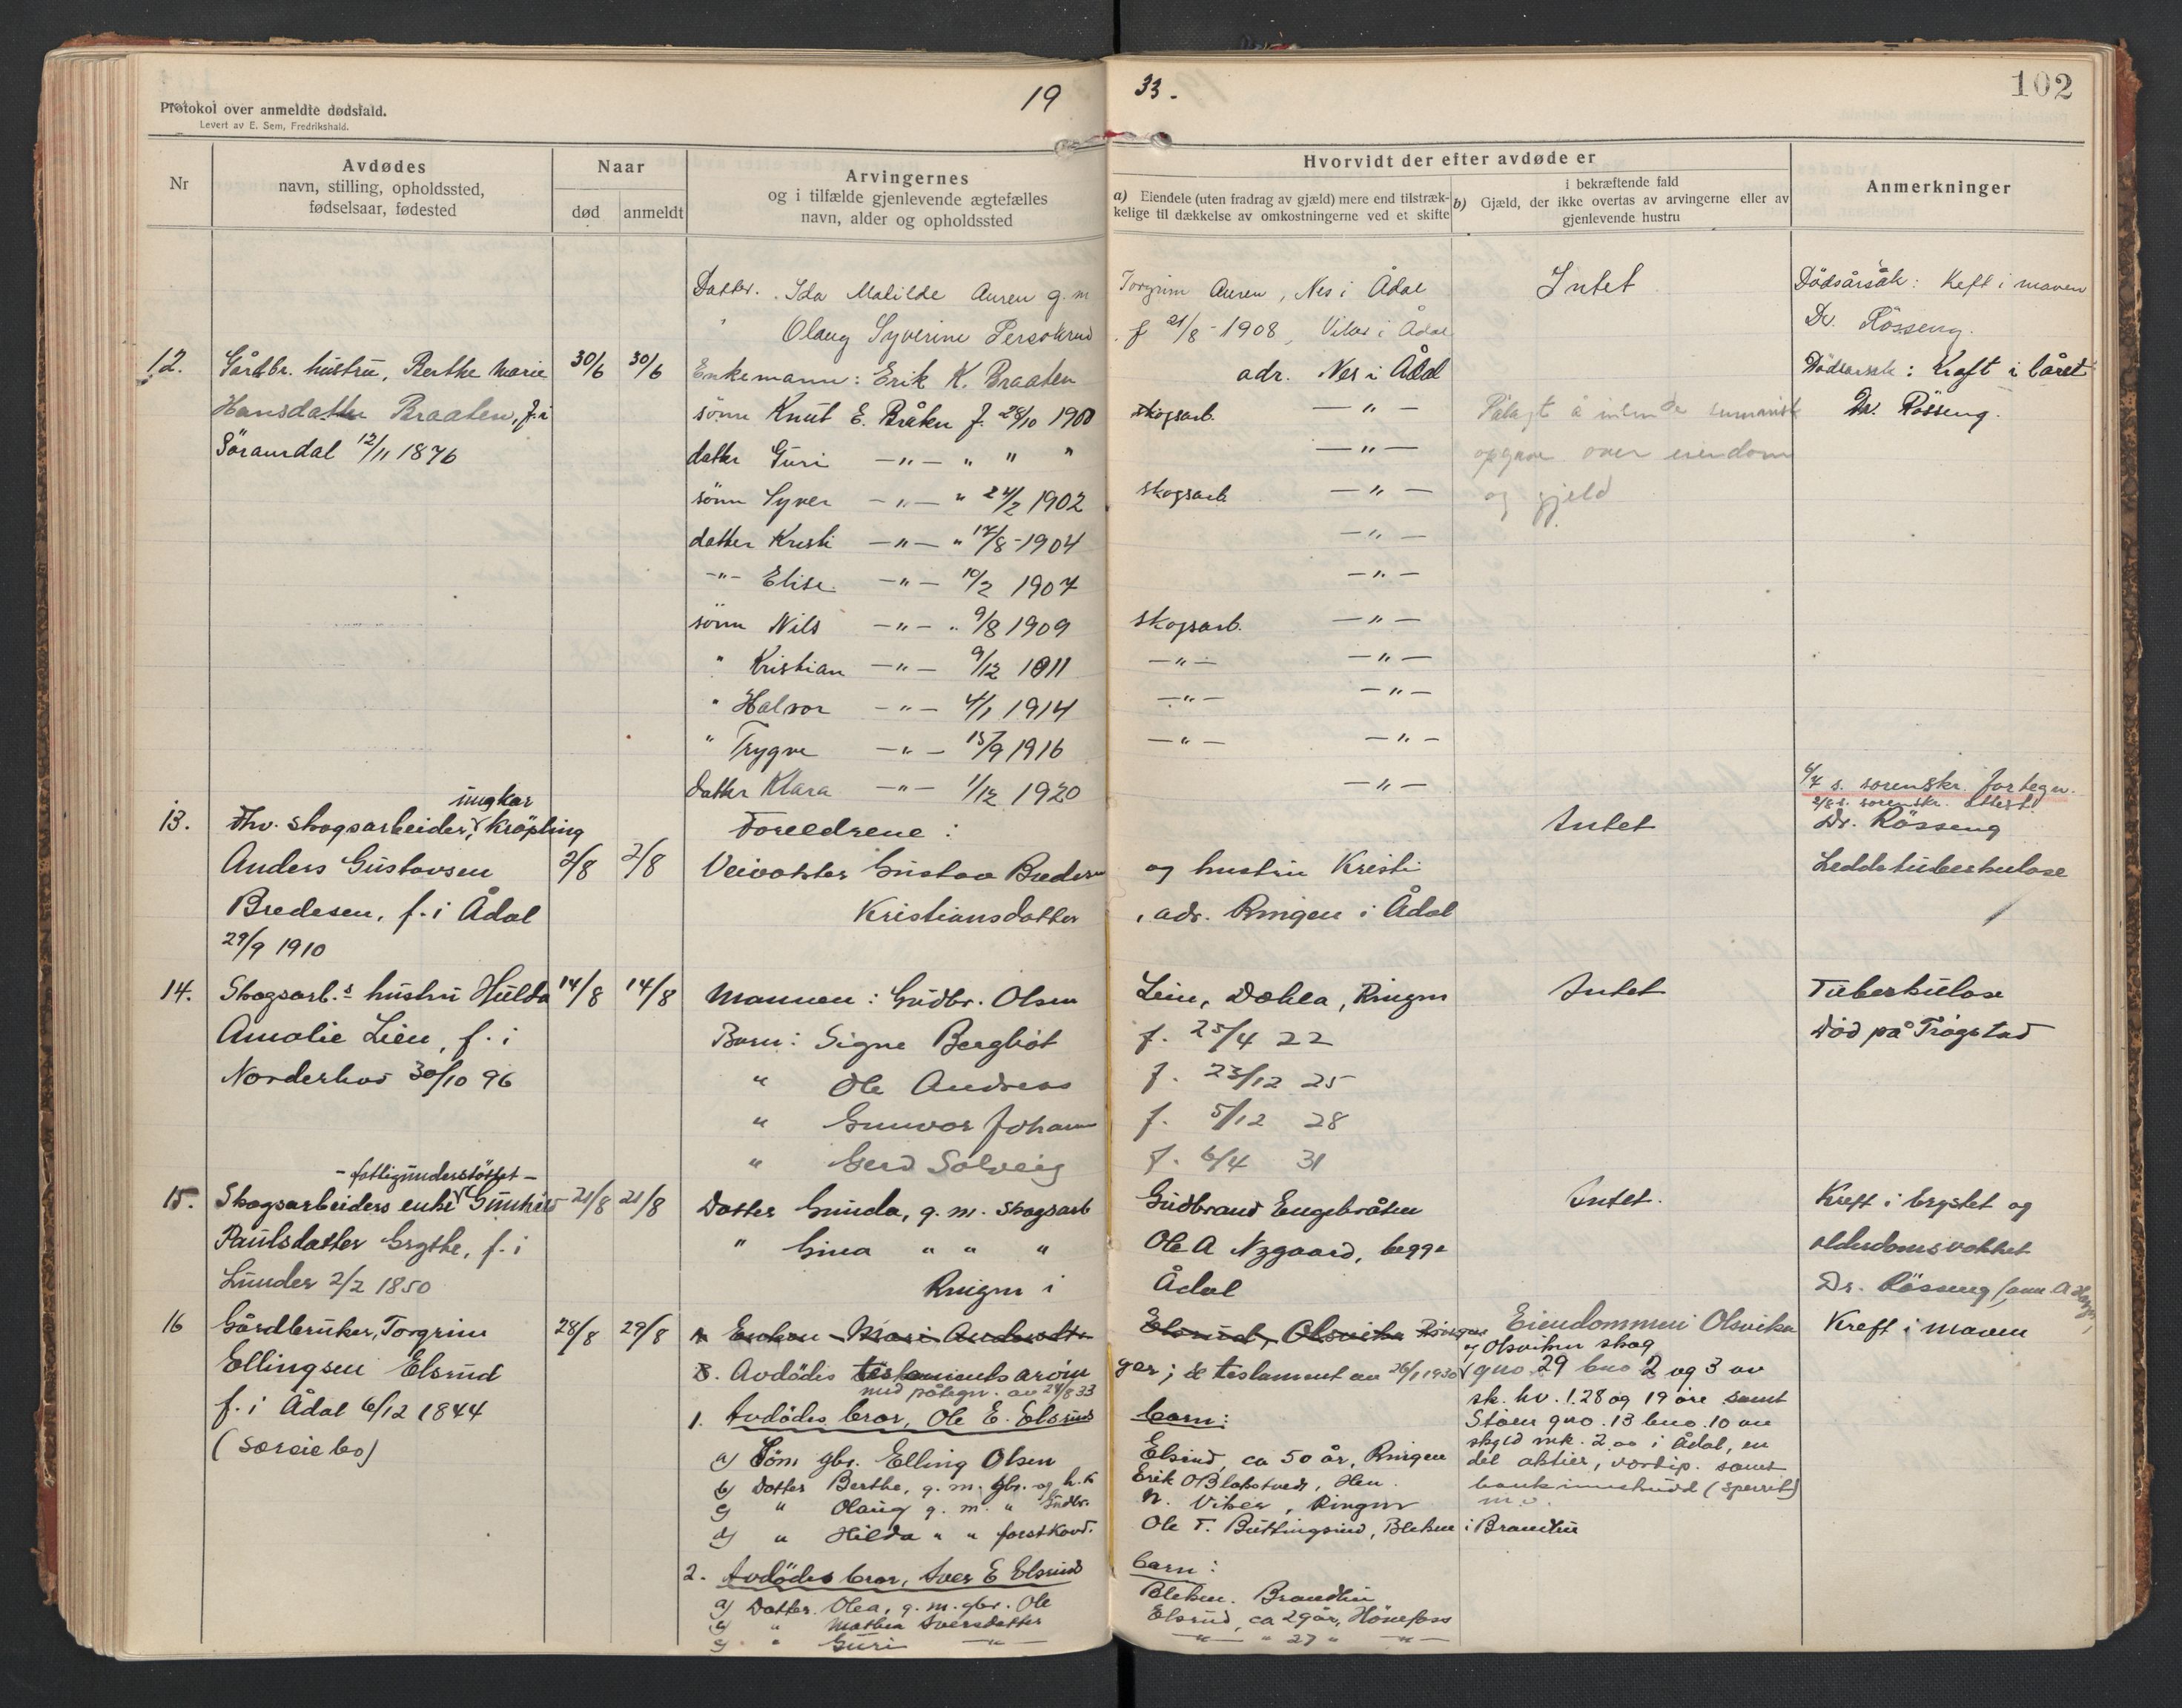 Protokol over anmeldte dødsfald.
Levert av E. Sem, Fredrikshald.
19
33.
102
Nr
Avdødes
navn, stilling, opholdssted,
fødselsaar, fødested
Naar
død
anmeldt
Arvingernes
og i tilfælde gjenlevende ægtefælles
navn, alder og opholdssted
Hvorvidt der efter avdøde er
a) Eiendele (uten fradrag av gjæld) mere end tilstræk-
kelige til dækkelse av omkostningerne ved et skifte
i bekræftende fald
b) Gjæld, der ikke overtas av arvingerne eller av
gjenlevende hustru
Anmerkninger
Datter. Ida Matilde Auren g. m Torgrim Auren, Nes i Ådal Intet Dödsårsak: Keft i maven
" Olaug Syverine f 21/8 - 1908, Viker i Ådal Dr. Rösseng.
12. Gårdbr. hustru, Berthe Marie 30/6 30/6 Enkemann: Erik K. Braaten adr. Nes i Ådal Dödsarsak: Kraft i låret
Hansdatter Braaten, f. i sönn Knut E. Bråten f. 28/10 1900 skogsarb. —"— Pålagt å summarisk Dr. Rösseng.
Söraurdal 12/11 1876 datter Guri —"— " " " —"— opgave over eiendom
sönn Syver —"— " 24/2 1902 skogsarb —"— og gjeld
datter Kristi —"— " 17/8 - 1904 —"—
—"— Elise —"— 10/2 1907 —"—
sönn Nils —"— " 9/8 1909 skogsarb. —"—
" Kristian —"— 9/12 1911 —"— —"—
" Halvor —"— 4/1 1914 —"— —"—
" Trygve —"— 15/9 1916 —"— —"—
datter Klara —"— 1/12 1920 —"— 6/4 s. sorenskr. fortegn.
ungkar 2/8 s. sorenskr. attest
13. Fhv. skogsarbeider, kröpling Foreldrene: Intet Dr. Rösseng
Anders Gustavsen 2/8 2/8 Veivokter Gustav Bredesen og hustru Kristi Leddetuberkulose
Bredesen, f. i Ådal Kristiansdatter, adr. Ringen i Ådal
29/9 1910
14. Skogsarb.s hustru Hulda 14/8 14/8 Mannen: Gudbr. Olsen Lien, Dokka, Ringen Intet Tuberkulose
Amalie Lien, f. i Barn: Signe Bergliot f. 25/4 22 Död på Trögstad
Norderhov 30/10 96 " Ole Andreas f. 23/12 25
" Gunvor Johanne f. 5/12 28
" Gerd Solveig f. 6/4 31
- fattigunderstöttet -
15. Skogsarbeiders enke Gunhild 21/8 21/8 Datter Gunda, g. m. skogsarb Gudbrand Engebråten Intet. Kreft i brystet og
Paulsdatter Grythe, f. i " Gina " " " Ole A Nygaard, begge alderdomsvakhet
Lunder 2/2 1850 Ringen i Ådal Dr. Rösseng
16 Gårdbruker, Torgrim 28/8 29/8 Enken Mari Elsrud, Olsviken Ringen Eiendommen i Olsviken Kreft i maven
og Olsviken skog
Ellingsen Elsrud Avdödes testamentsarvinger; se testament av 26/1 1930 gno 29 bno 2 og 3 av
med påtegn. av 24/8 33 sk. hv. 1.28 og 19 öre samt
f. i Ådal 6/12 1844 1. Avdödes bror, Ole E. Elsrud barn: Stöen gno. 13 bno. 10 av
(særeie bo) a) Sönn gbr. Elling Olsen Elsrud, ca 50 år, Ringen skyld mk. 2.00 i Ådal, en
b) Datter Berthe, g. m. gbr. og h.k. Erik O Blakstvedt, Hen del aktier, verdip. samt
c) " Olaug g. m. " Gudbr. N. Viker, Ringen bankinnskudd (sperret)
d) " Hilda " " forstkand. Ole T. Buttingsrud, Bleken i Brandbu m.v.
2. Avdödes bror, Iver E Elsrud barn:
a) Datter. Olea, g. m. gbr. Ole Bleken. Brandbu
b) " Mathea Iversdatter Elsrud, ca 29 år, Hönefoss
c) " Guri —"— —"— " 27 " —"—